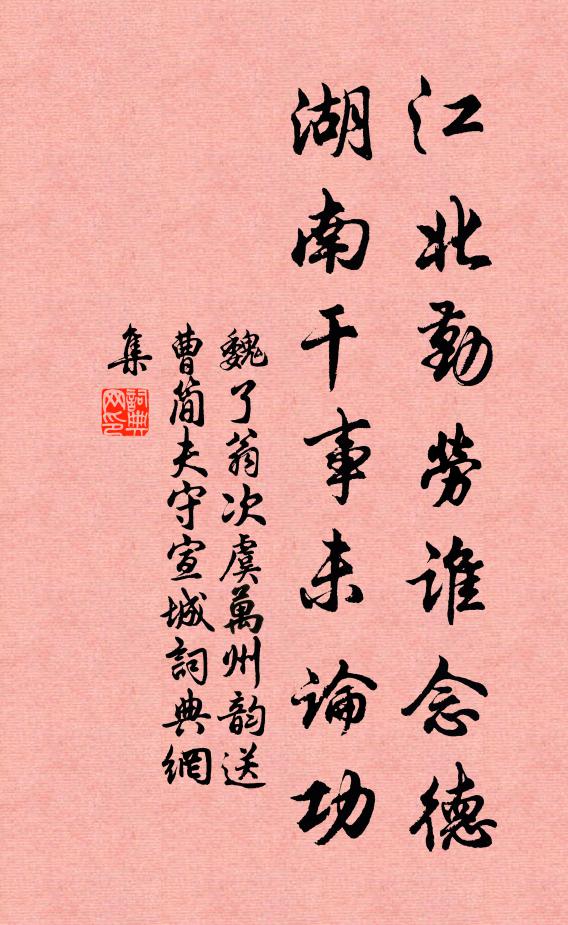 江北勤勞誰念德
湖南干事未論功
魏了翁次虞萬州韵送
曹简夫守宣城詞典網
集
詞典
网印